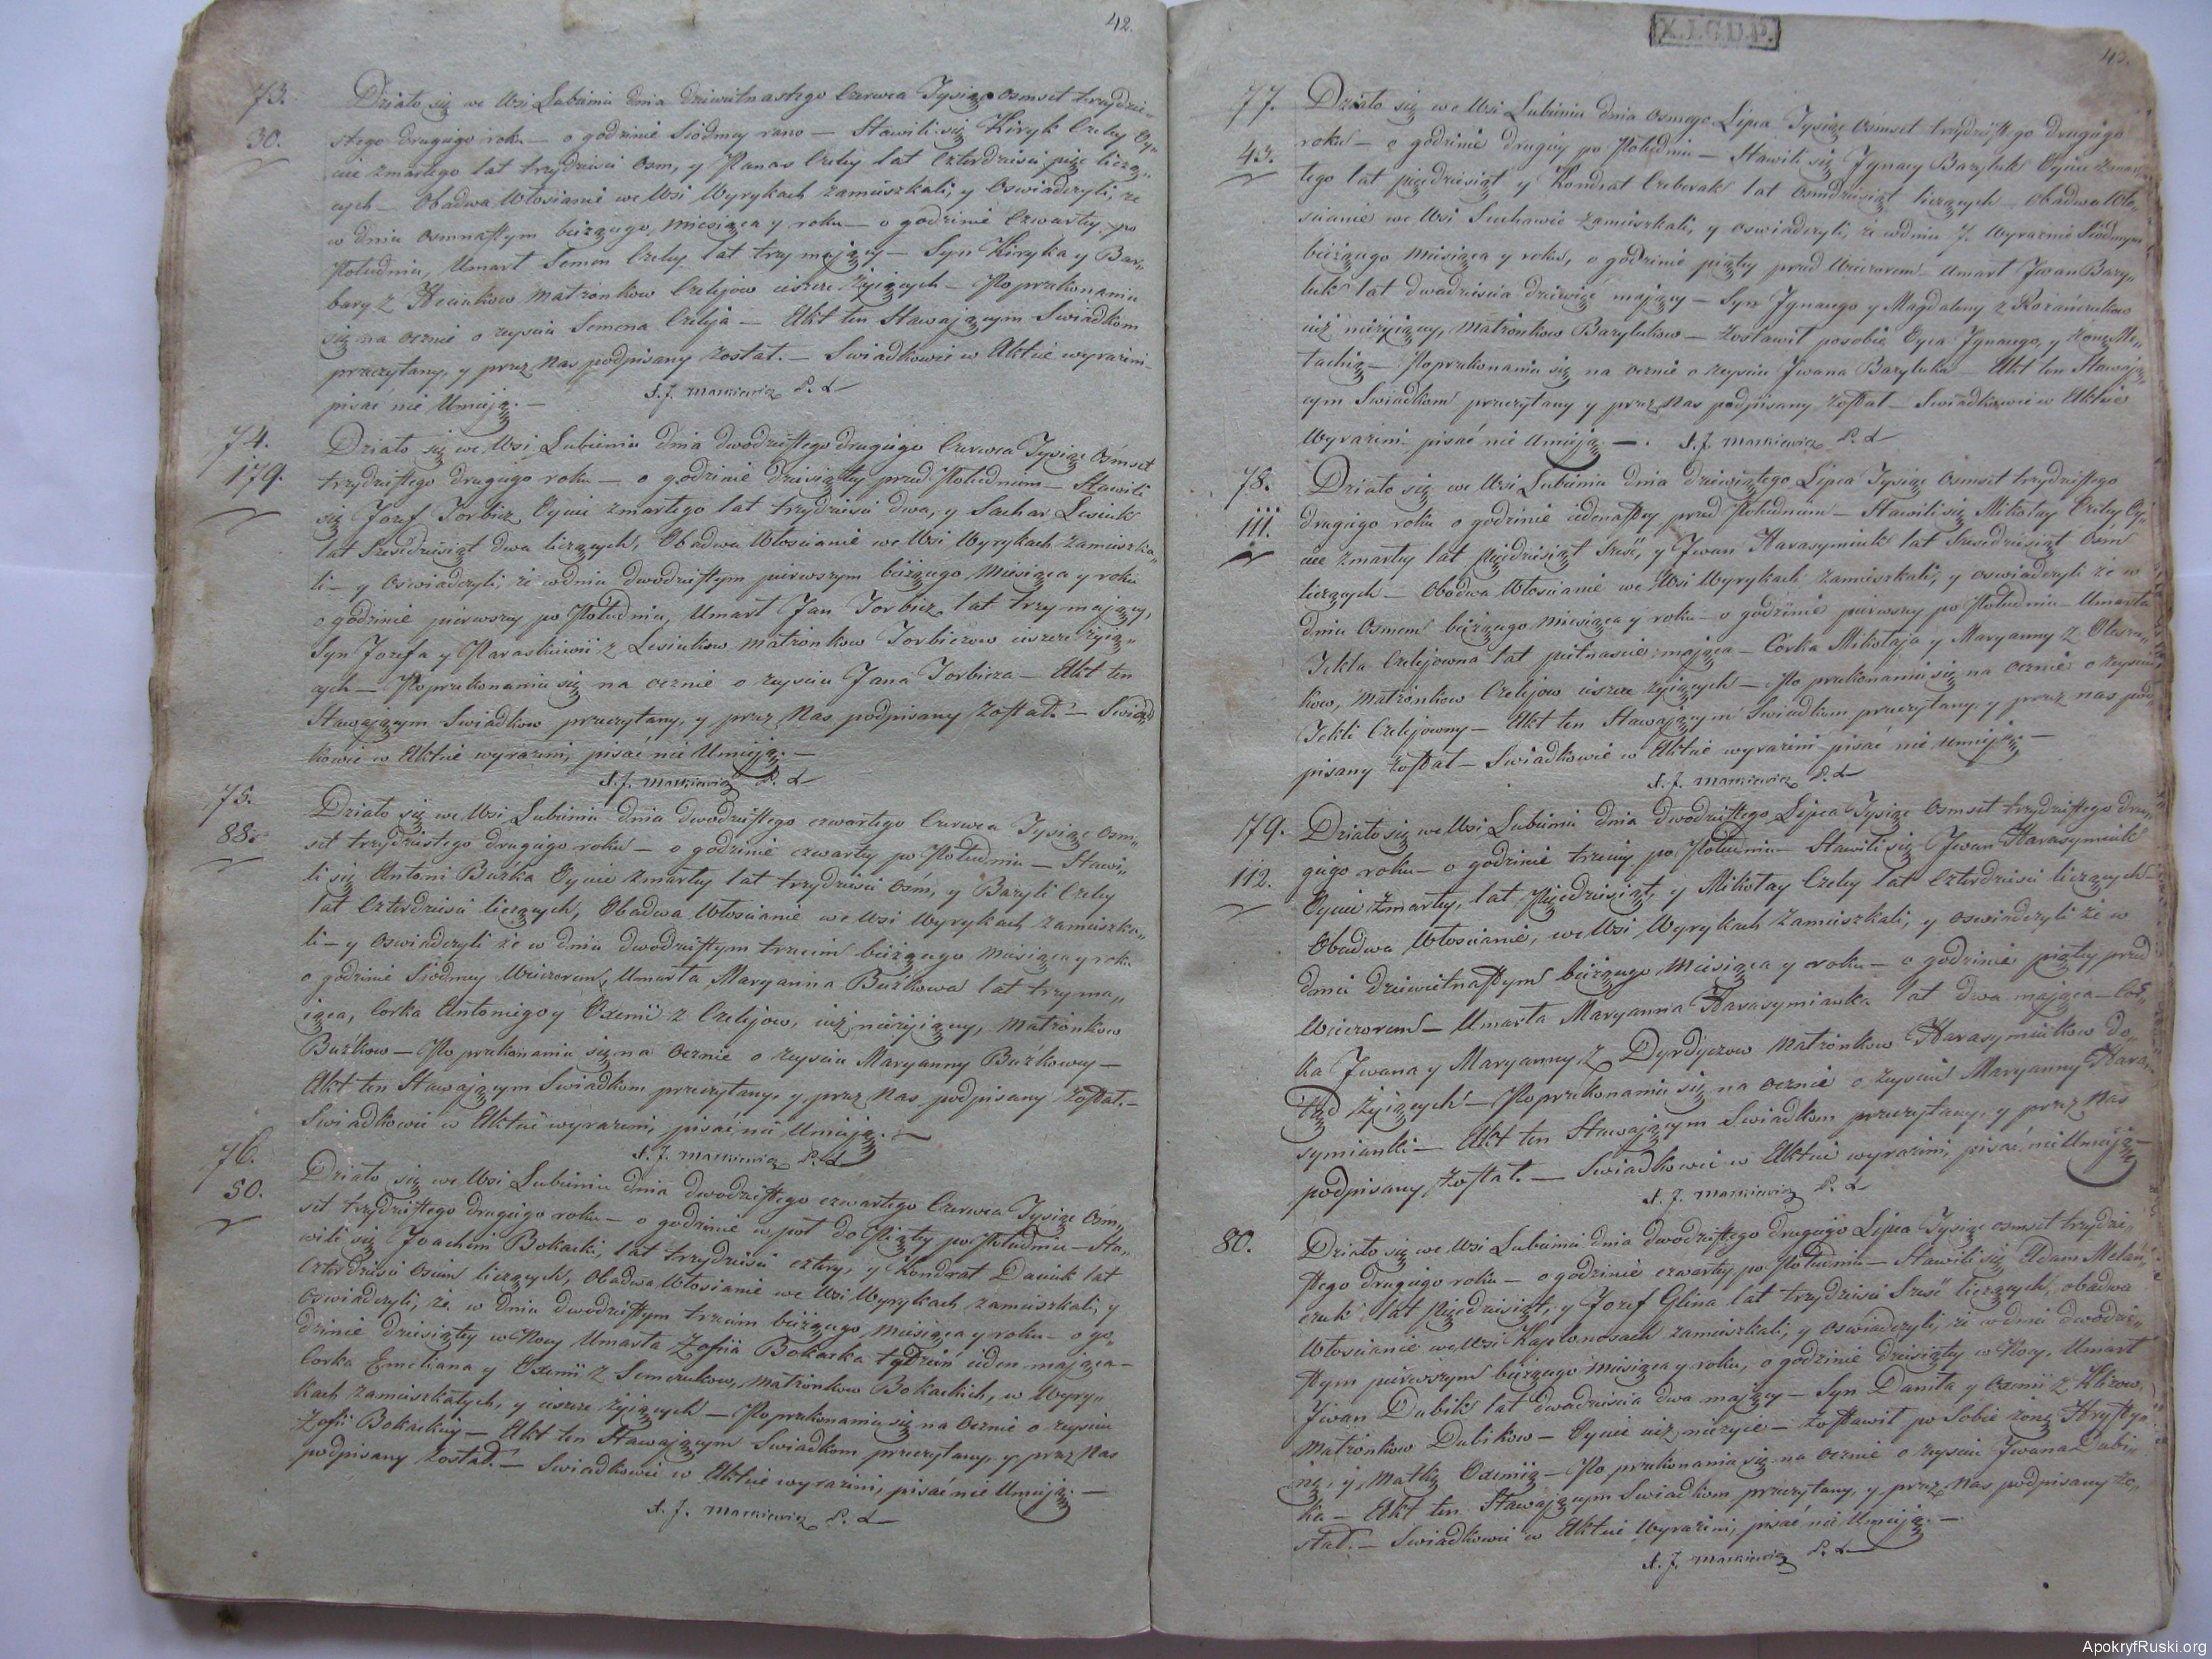 42.
73.
30.
Działo się we Wsi Lubieniu dnia dziewiętnastego Czerwca Tysiąc osmset trzydzie„
stego drugiego roku — o godzinie Siódmey rano — Stawili się Kiryk Czeley Oy„
ciec zmarłego lat trzydzieści osm, y Panas Czeley lat czterdzieści pięć liczą„
cych — Obadwa Włosianie we Wsi Wyrykach zamieszkali, y Oswiadczyli, że
w dniu osmnastym bieżącego Miesiąca y roku — o godzinie Czwartey po
Południu, Umarł Semen Czeley lat trzy mający — Syn Kiryka y Bar„
bary z Hciukow Matżonkow Czelejow ieszcze żyiących — Po przekonaniu
się na ocznie o zeysciu Semena Czeleja — Akt ten Stawającym Świadkom
przeczytany, y przez Nas podpisany został. — Swiadkowie w Akcie wyrażeni
pisać nie Umieją. —
X. J. Markiewicz P. L
74.
179.
Działo się we Wsi Lubieniu dnia dwodziestego drugiego Czerwca Tysiąc Osmset
trzydziestego drugiego roku — o godzinie dziesiątey przed Południem — Stawili
się Jozef Torbicz Oyciec zmarłego lat trzydzieści dwa, y Sachar Lesiuk
lat Szesdziesiąt dwa liczących, Obadwa Włoscianie we Wsi Wyrykach zamieszka„
li — y Oswiadczyli, że w dniu dwodziestym pierwszym bieżącego Miesiąca y roku
o godzinie pierwszey po Południu, Umarł Jan Torbicz lat trzy mający,
Syn Jozefa y Paraskiewii z Lesiukow matżonkow Torbiczow ieszcze żyią„
cych — Po przekonaniu się na ocznie o zeysciu Jana Torbicza — Akt ten
Stawającym Swiadkow przeczytany, y przez Nas podpisany został. — Swiad
kowie w Akcie wyrażeni, pisać nie Umieją. —
X. J. Markiewicz P. L
75.
88.
Działo się we Wsi Lubieniu dnia dwodziestego czwartego Czerwca Tysiąc Osm„
set trzydziestego drugiego roku — o godzinie czwartey po Południu — Stawi„
li się Antoni Buźka Oyciec zmarłey lat trzydzieści osm, y Bazyli Czeley
lat Czterdzieści liczących, Obadwa Włoscianie we Wsi Wyrykach zamieszka„
li — y oswiadczyli że w dniu dwodziestym trzecim bieżącego Miesiąca y roku
o godzinie Siódmey Wieczorem, Umarła Maryanna Buźkowa lat trzy ma„
iąca, Corka Antoniego y Oxenii z Czelejow, iuż nieżyiącey, matżonkow
Buźkow — Po przekonaniu się na Ocznie o zeysciu Maryanny Buźkowey —
Akt ten Stawającym Swiadkom przeczytany, y przez Nas podpisany został. —
Swiadkowie w Akcie wyrażeni, pisać nie Umieją. —
X. J. Markiewicz P. L
76.
50.
Działo się we Wsi Lubieniu dnia dwodziestego czwartego Czerwca Tysiąc Osm„
set trzydziestego drugiego roku — o godzinie w poł do Piątey po Południu — Sta„
wili się Joachim Bokacki, lat trzydzieści cztery, y Kondrat Daciuk lat
czterdzieści osiem liczących, Obadwa Włosianie we Wsi Wyrykach zamieszkali, y
oswiadczyli, że w dniu dwodziestym trzecim bieżącego Miesiąca y roku — o go„
dzinie dziesiątey w Nocy Umarła Zofia Bokacka tydzień ieden mająca —
Corka Emeliana y Oxenii z Semczukow, Matżonkow Bokackich, w Wyry„
kach zamieszkałych, y ieszcze żyiących — Po przekonaniu się na Ocznie o zeysciu
Zofii Bokackiey — Akt ten Stawającym Swiadkom przeczytany, y przez Nas
podpisany został. — Swiadkowie w Akcie wyrażeni, pisać nie Umieją. —
X. J. Markiewicz P. L
X.I.G.D.P.
77.
43.
Działo się we Wsi Lubieniu dnia osmego Lipca Tysiąc Osmset trzydziestego drugiego
roku — o godzinie drugiey po Południu — Stawili się Jgnacy Bazyluk Oyciec zmar
łego lat pięćdziesiąt y Kondrat Czeberak lat Osmdziesiąt liczących — Obadwa Wło„
scianie we Wsi Suchawie zamieszkali, y oswiadczyli, że w dniu 7. Wyraznie Siódmym
bieżącego Miesiąca y roku, o godzinie piątey przed Wieczorem — Umarł Jwan Bazy„
luk lat dwadzieścia dziewięć mający — Syn Jgnacego y Magdaleny z
iuż nieżyiącey, Matżonkow Bazylukow — zostawił po sobie Oyca Jgnacego, y żonę Me„
łachię — Po przekonaniu się na ocznie o zeysciu Jwana Bazyluka — Akt ten Stawają„
cym Swiadkom przeczytany y przez Nas podpisany został — Swiadkowie w Akcie
Wyrażeni pisać nie Umieją. —
X. J. Markiewicz P. L
78.
111.
Działo się we Wsi Lubieniu dnia dziewiątego Lipca Tysiąc Osmset trzydziestego
drugiego roku o godzinie iedenastey przed Południem — Stawili się Mikołay Czeley Oy„
ciec zmarłey lat pięćdziesiąt Szesć, y Jwan Harasymiuk lat Szesdziesiąt Osm
liczących — Obadwa Włoscianie we Wsi Wyrykach zamieszkali, y oswiadczyli że w
dniu Osmem bieżącego miesiąca y roku — o godzinie pierwszey po Południu — Umarła
Tekla Czelejowna lat pietnascie mająca — Corka Mikołaja y Maryanny z
kow, Matżonkow Czelejow ieszcze żyiących — Po przekonaniu się na Ocznie o zeysciu
Tekli Czelejowny — Akt ten Stawającym Swiadkom przeczytany, y przez nas pod„
pisany został — Swiadkowie w Akcie wyrażeni pisać nie umieją —
X. J. Markiewicz P. L
79.
112.
Działo się we Wsi Lubieniu dnia dwodziestego Lipca Tysiąc Osmset trzydziestego dru„
giego roku — o godzinie trzeciey po Południu — Stawili się Jwan Harasymiuk
Oyciec zmarłey, lat Pięćdziesiąt, y Mikołay Czeley lat Czterdzieści liczących —
Obadwa Włoscianie, we Wsi Wyrykach zamieszkali, y oswiadczyli że w
dniu dziewiętnastym bieżącego Miesiąca y roku — o godzinie piątey przed
Wieczorem — Umarła Maryanna Harasymianka lat dwa mająca — Cor„
ka Jwana y Maryanny z Dyrdyczow Matżonkow Harasymiukow do„
tąd żyiących — Po przekonaniu się na ocznie o zeysciu Maryanny Hara„
symianki — Akt ten Stawającym Swiadkom przeczytany, y przez Nas
podpisany został. — Swiadkowie w Akcie wyrażeni, pisać nie Umieją —
X. J. Markiewicz P. L
80.
Działo się we Wsi Lubieniu dnia dwodziestego drugiego Lipca Tysiąc osmset trzydzie„
stego drugiego roku — o godzinie czwartey po Południu — Stawili się Adam Melań„
czuk lat Pięćdziesiąt, y Jozef Glina lat trzydzieści Szesć liczących, obadwa
Włoscianie we Wsi Kapłonosach zamieszkali, y oswiadczyli, że w dniu dwodzie„
stym pierwszym bieżącego Miesiąca y roku, o godzinie dziesiątey w Nocy, Umarł
Jwan Dubik lat dwadzieścia dwa mający — Syn Daniła y Oxenii z
Matżonkow Dubikow — Oyciec iuż nieżyie — zostawił po Sobie żonę Krysty„
nę, y Matkę Oxenią — Po przekonaniu się na Ocznie o zeysciu Jwana Dubi„
ka — Akt ten Stawającym Swiadkom przeczytany, y przez Nas podpisany zo„
stał. — Swiadkowie w Akcie Wyrażeni, pisać nie Umieją. —
X. J. Markiewicz P. L
ApokryfRuski.org